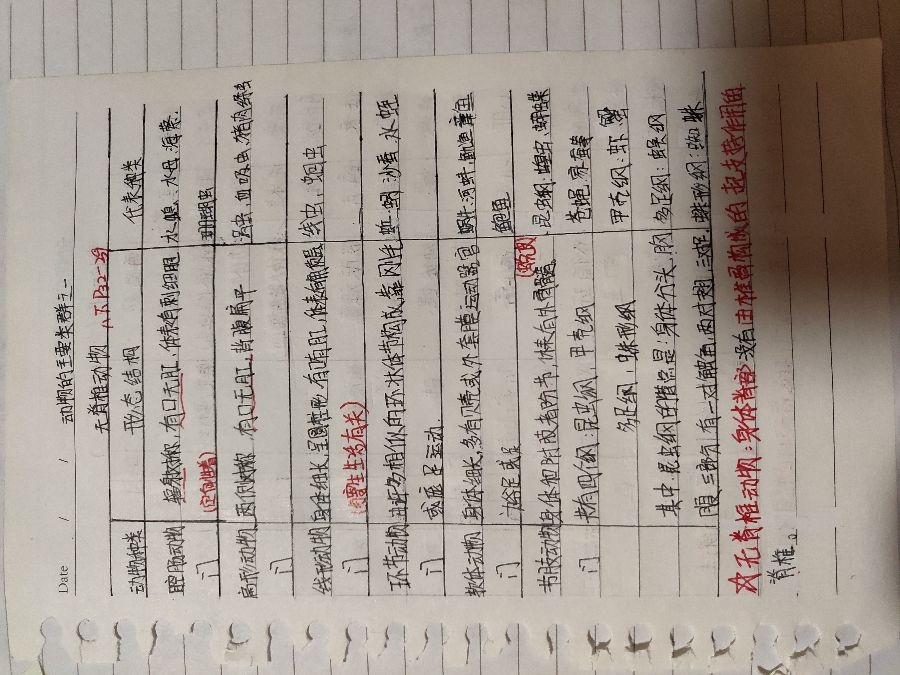 Date / /
动物的主要类群之一
无脊椎动物 八下P32-29
动物种类 形态结构 代表种类
腔肠动物 辐射对称,有口无肛,体表有刺细胞 水螅、水母、海葵、
门 珊瑚虫
扁形动物 两侧对称 有口无肛,背腹扁平 涡虫、血吸虫、猪肉绦虫
门
线形动物 身体细长,呈圆柱形,有口有肛,体表有角质层 线虫、蛔虫
门
环节动物 由许多相似的环状体节构成靠刚毛 蚯蚓 沙蚕 水蛭
门 或疣足运动
软体动物 身体细长,多有贝壳或外套膜运动器官 蜗牛、河蚌、鱿鱼章鱼
门 为足或足 鲍鱼
节肢动物 身体和附肢都分节,体表有外骨骼。 昆虫纲:蝗虫、蝴蝶
门 共有四个纲:昆虫纲,甲壳纲 苍蝇、家蚕
多足纲,蛛形纲 甲壳纲:虾 蟹
其中:昆虫纲的特点是:身体分头、胸 多足纲:蜈蚣
腹 三部分,有一对触角,两对翅,三对足. 蛛形纲:蜘蛛
☆无脊椎动物:身体背部没有由脊椎骨构成的 起支持作用的
脊椎。